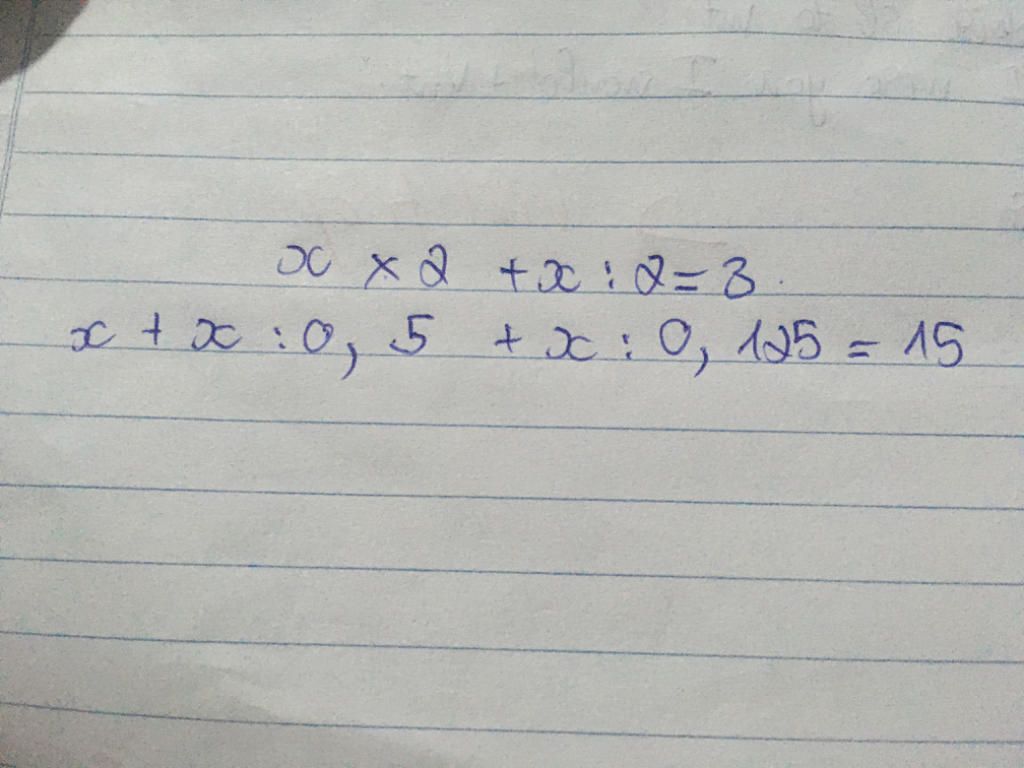 x × 2 + x : 2 = 3
x + x : 0,5 + x : 0,125 = 15